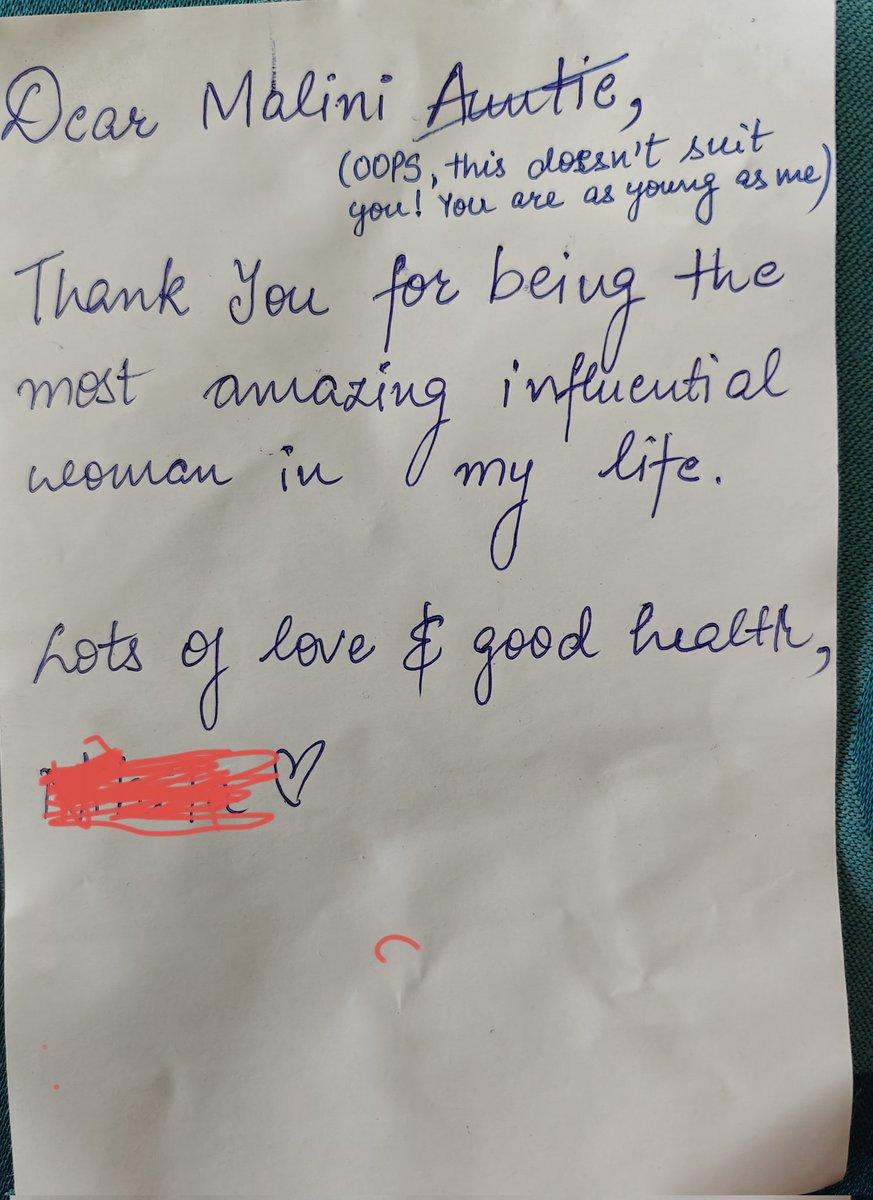 Dear Malini Auntie,
(OOPS, this doesn't suit
you! You are as young as me)
Thank You for being the
most amazing influential
woman in my life.
Lots of love & good health,
♡